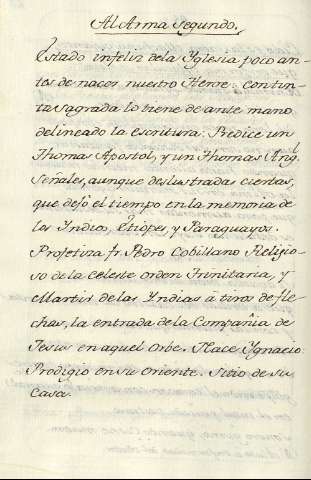 Al Arma segundo.
Estado infeliz dela Yglesia poco an-
tes de nacer nuestro Heroe: con tin-
ta sagrada lo tiene de ante mano
delineado la escritura. Predice un
Thomas Apostol, y un Thomas Ang.
Señales, aunque deslustradas ciertas,
que dejó el tiempo en la memoria de
los Yndios, Etiopes, y Paraguayos.
Profetiza fr. Pedro Cobillano Relijio-
so de la celeste orden Trinitaria, y
Martir de las Yndias à tiros de fle-
chas, la entrada de la Compañia de
Jesus en aquel Orbe. Nace Ygnacio
Prodigio en su Oriente. Sitio de su
Casa.